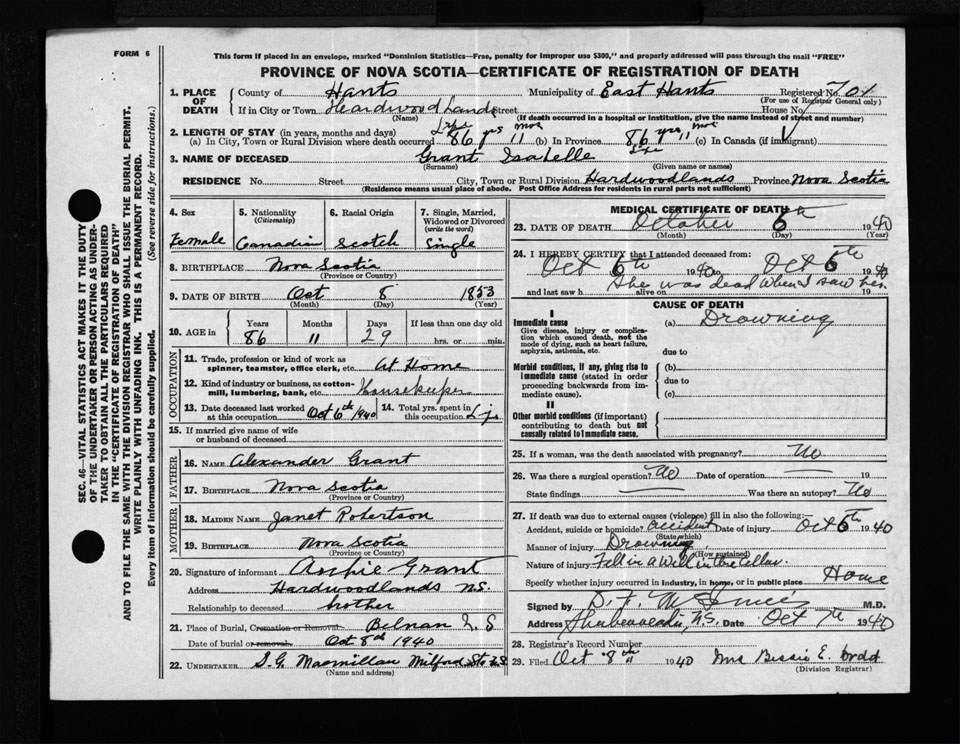 FORM 6
This form if placed in an envelope, marked "Dominion Statistics—Free, penalty for improper use $300," and properly addressed will pass through the mail "FREE"
PROVINCE OF NOVA SCOTIA—CERTIFICATE OF REGISTRATION OF DEATH
1. PLACE OF DEATH County of Hants Municipality of East Hants Registered No. 701
(For use of Registrar General only)
If in City or Town Hardwood Lands Street House No.
(Name) (If death occurred in a hospital or institution, give the name instead of street and number)
2. LENGTH OF STAY (in years, months and days)
(a) In City, Town or Rural Division where death occurred Life 86 yrs 11 mos (b) In Province Life 86 yrs, 11 mos (c) In Canada (if immigrant)
3. NAME OF DECEASED Grant Isabelle
(Surname) (Given name or names)
RESIDENCE No. Street City, Town or Rural Division Hardwoodlands Province Nova Scotia
(Residence means usual place of abode. Post Office Address for residents in rural parts not sufficient)
4. Sex Female
5. Nationality (Citizenship) Canadian
6. Racial Origin Scotch
7. Single, Married, Widowed or Divorced (write the word) Single
8. BIRTHPLACE Nova Scotia
(Province or Country)
9. DATE OF BIRTH Oct 8 1853
(Month) (Day) (Year)
10. AGE in Years Months Days If less than one day old
86 11 29 hrs. or min.
OCCUPATION
11. Trade, profession or kind of work as spinner, teamster, office clerk, etc. At Home
12. Kind of industry or business, as cotton-mill, lumbering, bank, etc. Housekeeper
13. Date deceased last worked at this occupation Oct 6th 1940 14. Total yrs. spent in this occupation
15. If married give name of wife or husband of deceased
FATHER
16. NAME Alexander Grant
17. BIRTHPLACE Nova Scotia
(Province or Country)
MOTHER
18. MAIDEN NAME Janet Robertson
19. BIRTHPLACE Nova Scotia
(Province or Country)
20. Signature of informant Archie Grant
Address Hardwoodlands N.S.
Relationship to deceased brother
21. Place of Burial, Cremation or Removal Belnan N.S
Date of burial or removal Oct 8th 1940
22. UNDERTAKER S.G. Macmillan Milford Sta N.S.
(Name and address)
MEDICAL CERTIFICATE OF DEATH
23. DATE OF DEATH October 6th 1940
(Month) (Day) (Year)
24. I HEREBY CERTIFY that I attended deceased from:
Oct 6th 1940 to Oct 6th 1940
She was dead when I saw her
and last saw h alive on 19
CAUSE OF DEATH
I
Immediate cause
Give disease, injury or complication which caused death, not the mode of dying, such as heart failure, asphyxia, asthenia, etc.
(a) Drowning
due to
Morbid conditions, if any, giving rise to immediate cause (stated in order proceeding backwards from immediate cause)
(b)
due to
(c)
II
Other morbid conditions (if important) contributing to death but not causally related to immediate cause.
25. If a woman, was the death associated with pregnancy? No
26. Was there a surgical operation? No Date of operation 19
State findings Was there an autopsy? No
27. If death was due to external causes (violence) fill in also the following:—
Accident, suicide or homicide? Accident Date of injury Oct 6th 1940
(State which)
Manner of injury Drowning
(How sustained)
Nature of injury Fell in a Well in the Cellar.
Specify whether injury occurred in industry, in home, or in public place Home
Signed by M.D.
Address Shubenacadie, N.S. Date Oct 7th 1940
28. Registrar's Record Number
29. Filed Oct 8th 1940 Mrs Bessie E.
(Division Registrar)
SEC. 46—VITAL STATISTICS ACT MAKES IT THE DUTY OF THE UNDERTAKER OR PERSON ACTING AS UNDERTAKER TO OBTAIN ALL THE PARTICULARS REQUIRED IN THE "CERTIFICATE OF REGISTRATION OF DEATH" AND TO FILE THE SAME WITH THE DIVISION REGISTRAR WHO SHALL ISSUE THE BURIAL PERMIT.
WRITE PLAINLY WITH UNFADING INK. THIS IS A PERMANENT RECORD.
Every item of information should be carefully supplied. (See reverse side for instructions.)